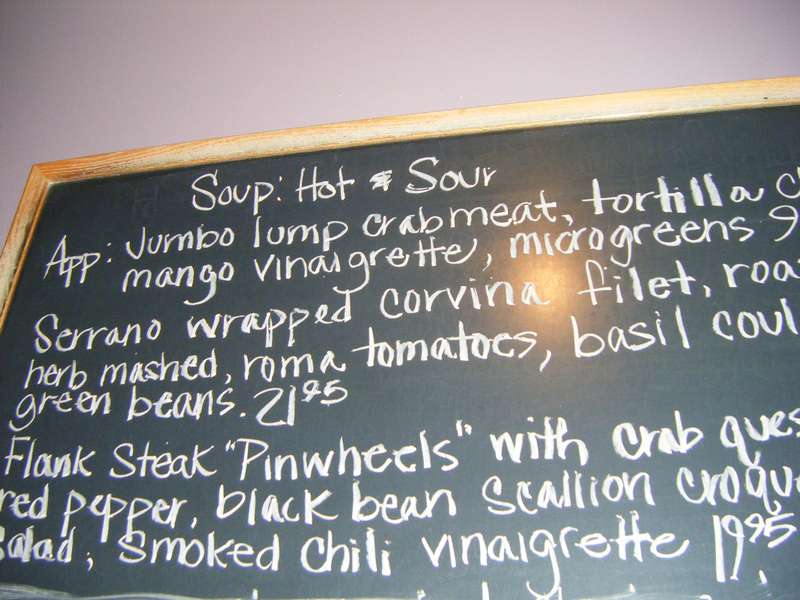 Soup: Hot & Sour
App: Jumbo lump crabmeat, tortilla
mango vinaigrette, microgreens 9
Serrano wrapped corvina filet,
herb mashed, roma tomatoes, basil
green beans. 21.95
Flank Steak "Pinwheels" with crab
red pepper, black bean scallion
salad, smoked chili vinaigrette 19.95